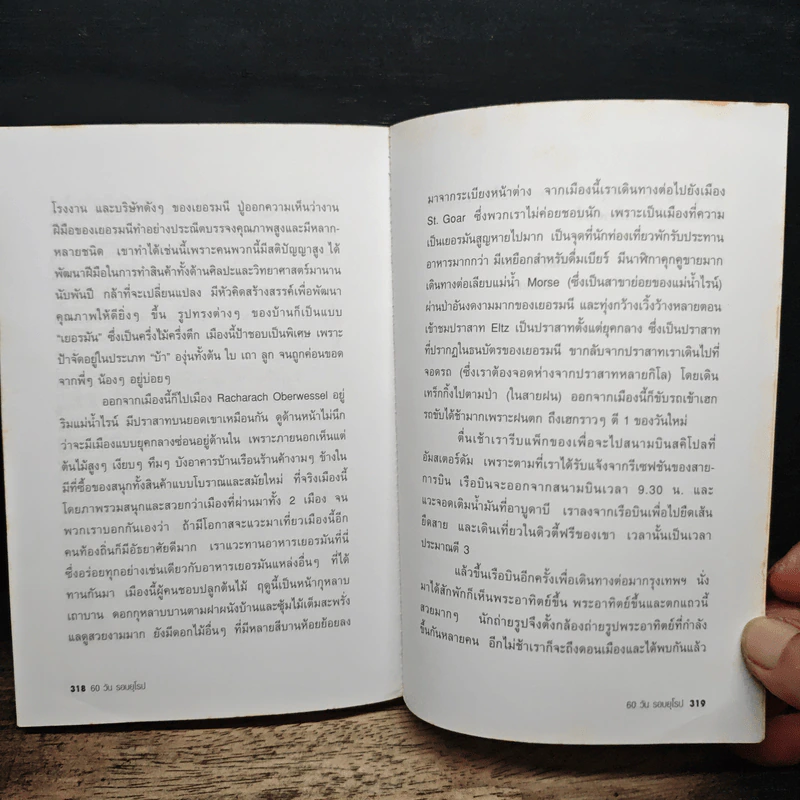 โรงงาน และบริษัทดังๆ ของเยอรมนี ปู่ออกความเห็นว่างาน
ฝีมือของเยอรมนีทำอย่างประณีตบรรจงคุณภาพสูงและมีหลาก-
หลายชนิด เขาทำได้เช่นนี้เพราะคนพวกนี้มีสติปัญญาสูง ได้
พัฒนาฝีมือในการทำสินค้าทั้งด้านศิลปะและวิทยาศาสตร์มานาน
นับพันปี กล้าที่จะเปลี่ยนแปลง มีหัวคิดสร้างสรรค์เพื่อพัฒนา
คุณภาพให้ดียิ่งๆ ขึ้น รูปทรงต่างๆ ของบ้านก็เป็นแบบ
“เยอรมัน” ซึ่งเป็นครึ่งไม้ครึ่งตึก เมืองนี้ป้าชอบเป็นพิเศษ เพราะ
ป้าจัดอยู่ในประเภท “บ้า” องุ่นทั้งต้น ใบ เถา ลูก จนถูกค่อนขอด
จากพี่ๆ น้องๆ อยู่บ่อยๆ
ออกจากเมืองนี้ก็ไปเมือง Racharach Oberwessel อยู่
ริมแม่น้ำไรน์ มีปราสาทบนยอดเขาเหมือนกัน ดูด้านหน้าไม่นึก
ว่าจะมีเมืองแบบยุคกลางซ่อนอยู่ด้านใน เพราะภายนอกเห็นแต่
ต้นไม้สูงๆ เงียบๆ ทึมๆ บังอาคารบ้านเรือนร้านค้างามๆ ข้างใน
มีที่ซื้อของสนุกทั้งสินค้าแบบโบราณและสมัยใหม่ ที่จริงเมืองนี้
โดยภาพรวมสนุกและสวยกว่าเมืองที่ผ่านมาทั้ง 2 เมือง จน
พวกเราบอกกันเองว่า ถ้ามีโอกาสจะแวะมาเที่ยวเมืองนี้อีก
คนท้องถิ่นก็มีอัธยาศัยดีมาก เราแวะทานอาหารเยอรมันที่นี่
ซึ่งอร่อยทุกอย่างเช่นเดียวกับอาหารเยอรมันแหล่งอื่นๆ ที่ได้
ทานกันมา เมืองนี้ผู้คนชอบปลูกต้นไม้ ฤดูนี้เป็นหน้ากุหลาบ
เถาบาน ดอกกุหลาบบานตามฝาผนังบ้านและซุ้มไม้เต็มสะพรั่ง
แลดูสวยงามมาก ยังมีดอกไม้อื่นๆ ที่มีหลายสีบานห้อยย้อยลง
318 60 วัน รอบยุโรป
มาจากระเบียงหน้าต่าง จากเมืองนี้เราเดินทางต่อไปยังเมือง
St. Goar ซึ่งพวกเราไม่ค่อยชอบนัก เพราะเป็นเมืองที่ความ
เป็นเยอรมันสูญหายไปมาก เป็นจุดที่นักท่องเที่ยวพักรับประทาน
อาหารมากกว่า มีเหยือกสำหรับดื่มเบียร์ มีนาฬิกาคุกคูขายมาก
เดินทางต่อเลียบแม่น้ำ Morse (ซึ่งเป็นสาขาย่อยของแม่น้ำไรน์)
ผ่านป่าอันงดงามมากของเยอรมนี และทุ่งกว้างเวิ้งว้างหลายตอน
เข้าชมปราสาท Eltz เป็นปราสาทตั้งแต่ยุคกลาง ซึ่งเป็นปราสาท
ที่ปรากฏในธนบัตรของเยอรมนี ขากลับจากปราสาทเราเดินไปที่
จอดรถ (ซึ่งเราต้องจอดห่างจากปราสาทหลายกิโล) โดยเดิน
เทร็กกิ้งไปตามป่า (ในสายฝน) ออกจากเมืองนี้ก็ขับรถเข้าเฮก
รถขับได้ช้ามากเพราะฝนตก ถึงเฮกราวๆ ตี 1 ของวันใหม่
ตื่นเช้าเรารีบแพ็กของเพื่อจะไปสนามบินสคิโปลที่
อัมสเตอร์ดัม เพราะตามที่เราได้รับแจ้งจากรีเซฟชันของสาย-
การบิน เรือบินจะออกจากสนามบินเวลา 9.30 น. และ
แวะจอดเติมน้ำมันที่อาบูดาบี เราลงจากเรือบินเพื่อไปยืดเส้น
ยืดสาย และเดินเที่ยวในดิวตี้ฟรีของเขา เวลานั้นเป็นเวลา
ประมาณตี 3
แล้วขึ้นเรือบินอีกครั้งเพื่อเดินทางต่อมากรุงเทพฯ นั่ง
มาได้สักพักก็เห็นพระอาทิตย์ขึ้น พระอาทิตย์ขึ้นและตกแถวนี้
สวยมากๆ นักถ่ายรูปจึงตั้งกล้องถ่ายรูปพระอาทิตย์ที่กำลัง
ขึ้นกันหลายคน อีกไม่ช้าเราก็จะถึงดอนเมืองและได้พบกันแล้ว
60 วัน รอบยุโรป 319